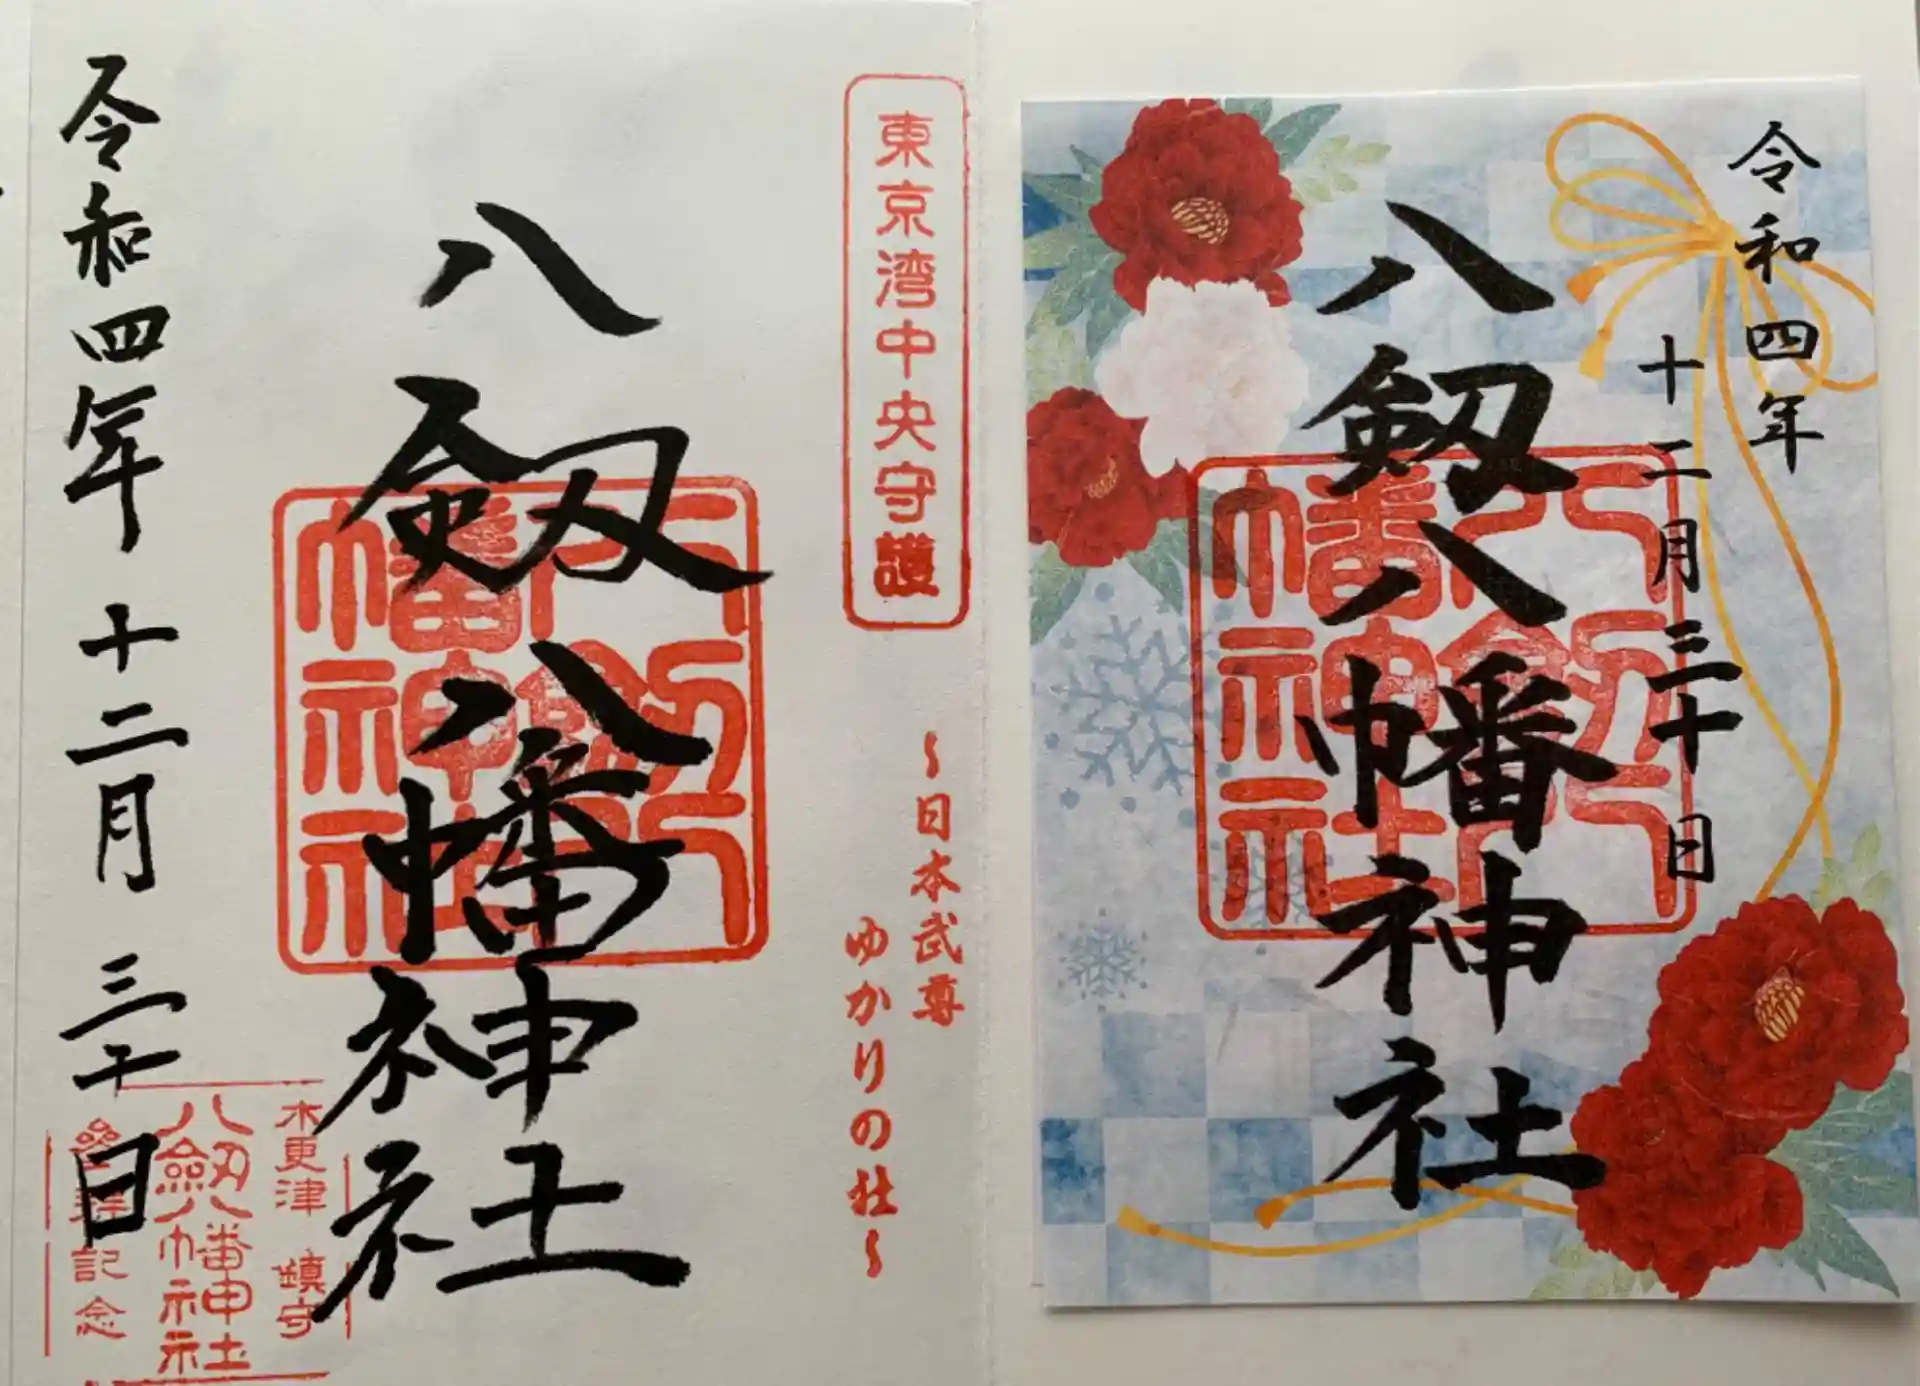 令和四年
十二月三十日
八剱八幡神社
八剱八
幡神社
東京湾中央守護
〜日本武尊
ゆかりの社〜
八剱八幡神社
八剱八
幡神社
木更津 鎮守
八劔八幡神社
參拝記念
令和四年 十二月 三十日